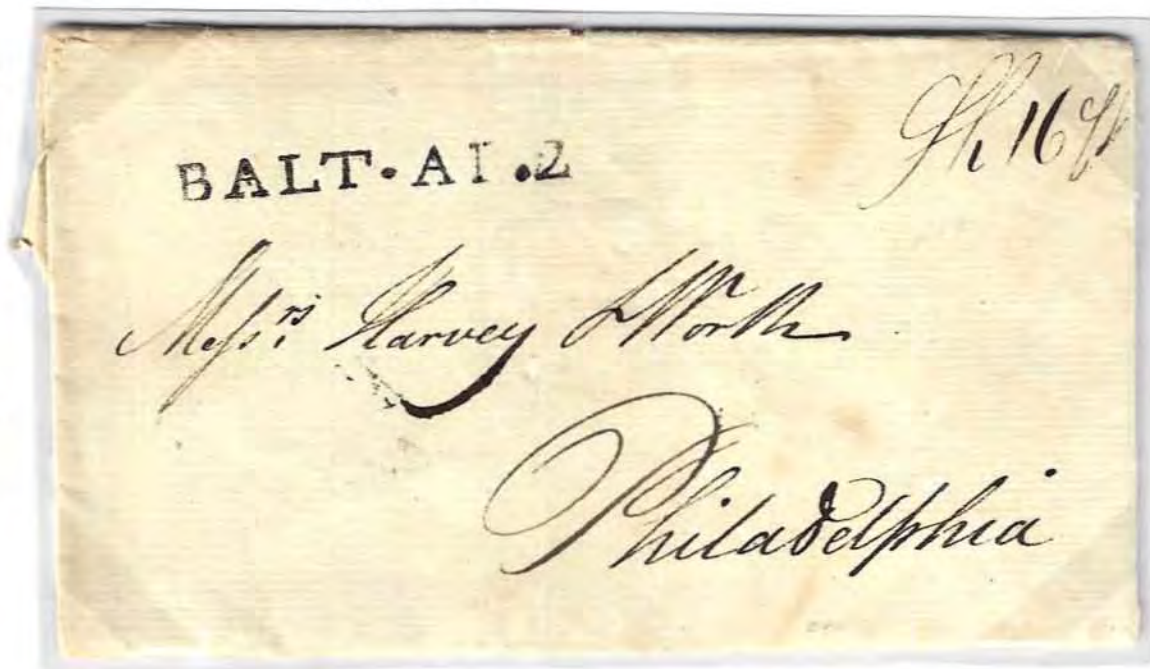 BALT·AI.2
16
Messrs. Harvey & Worth
Philadelphia